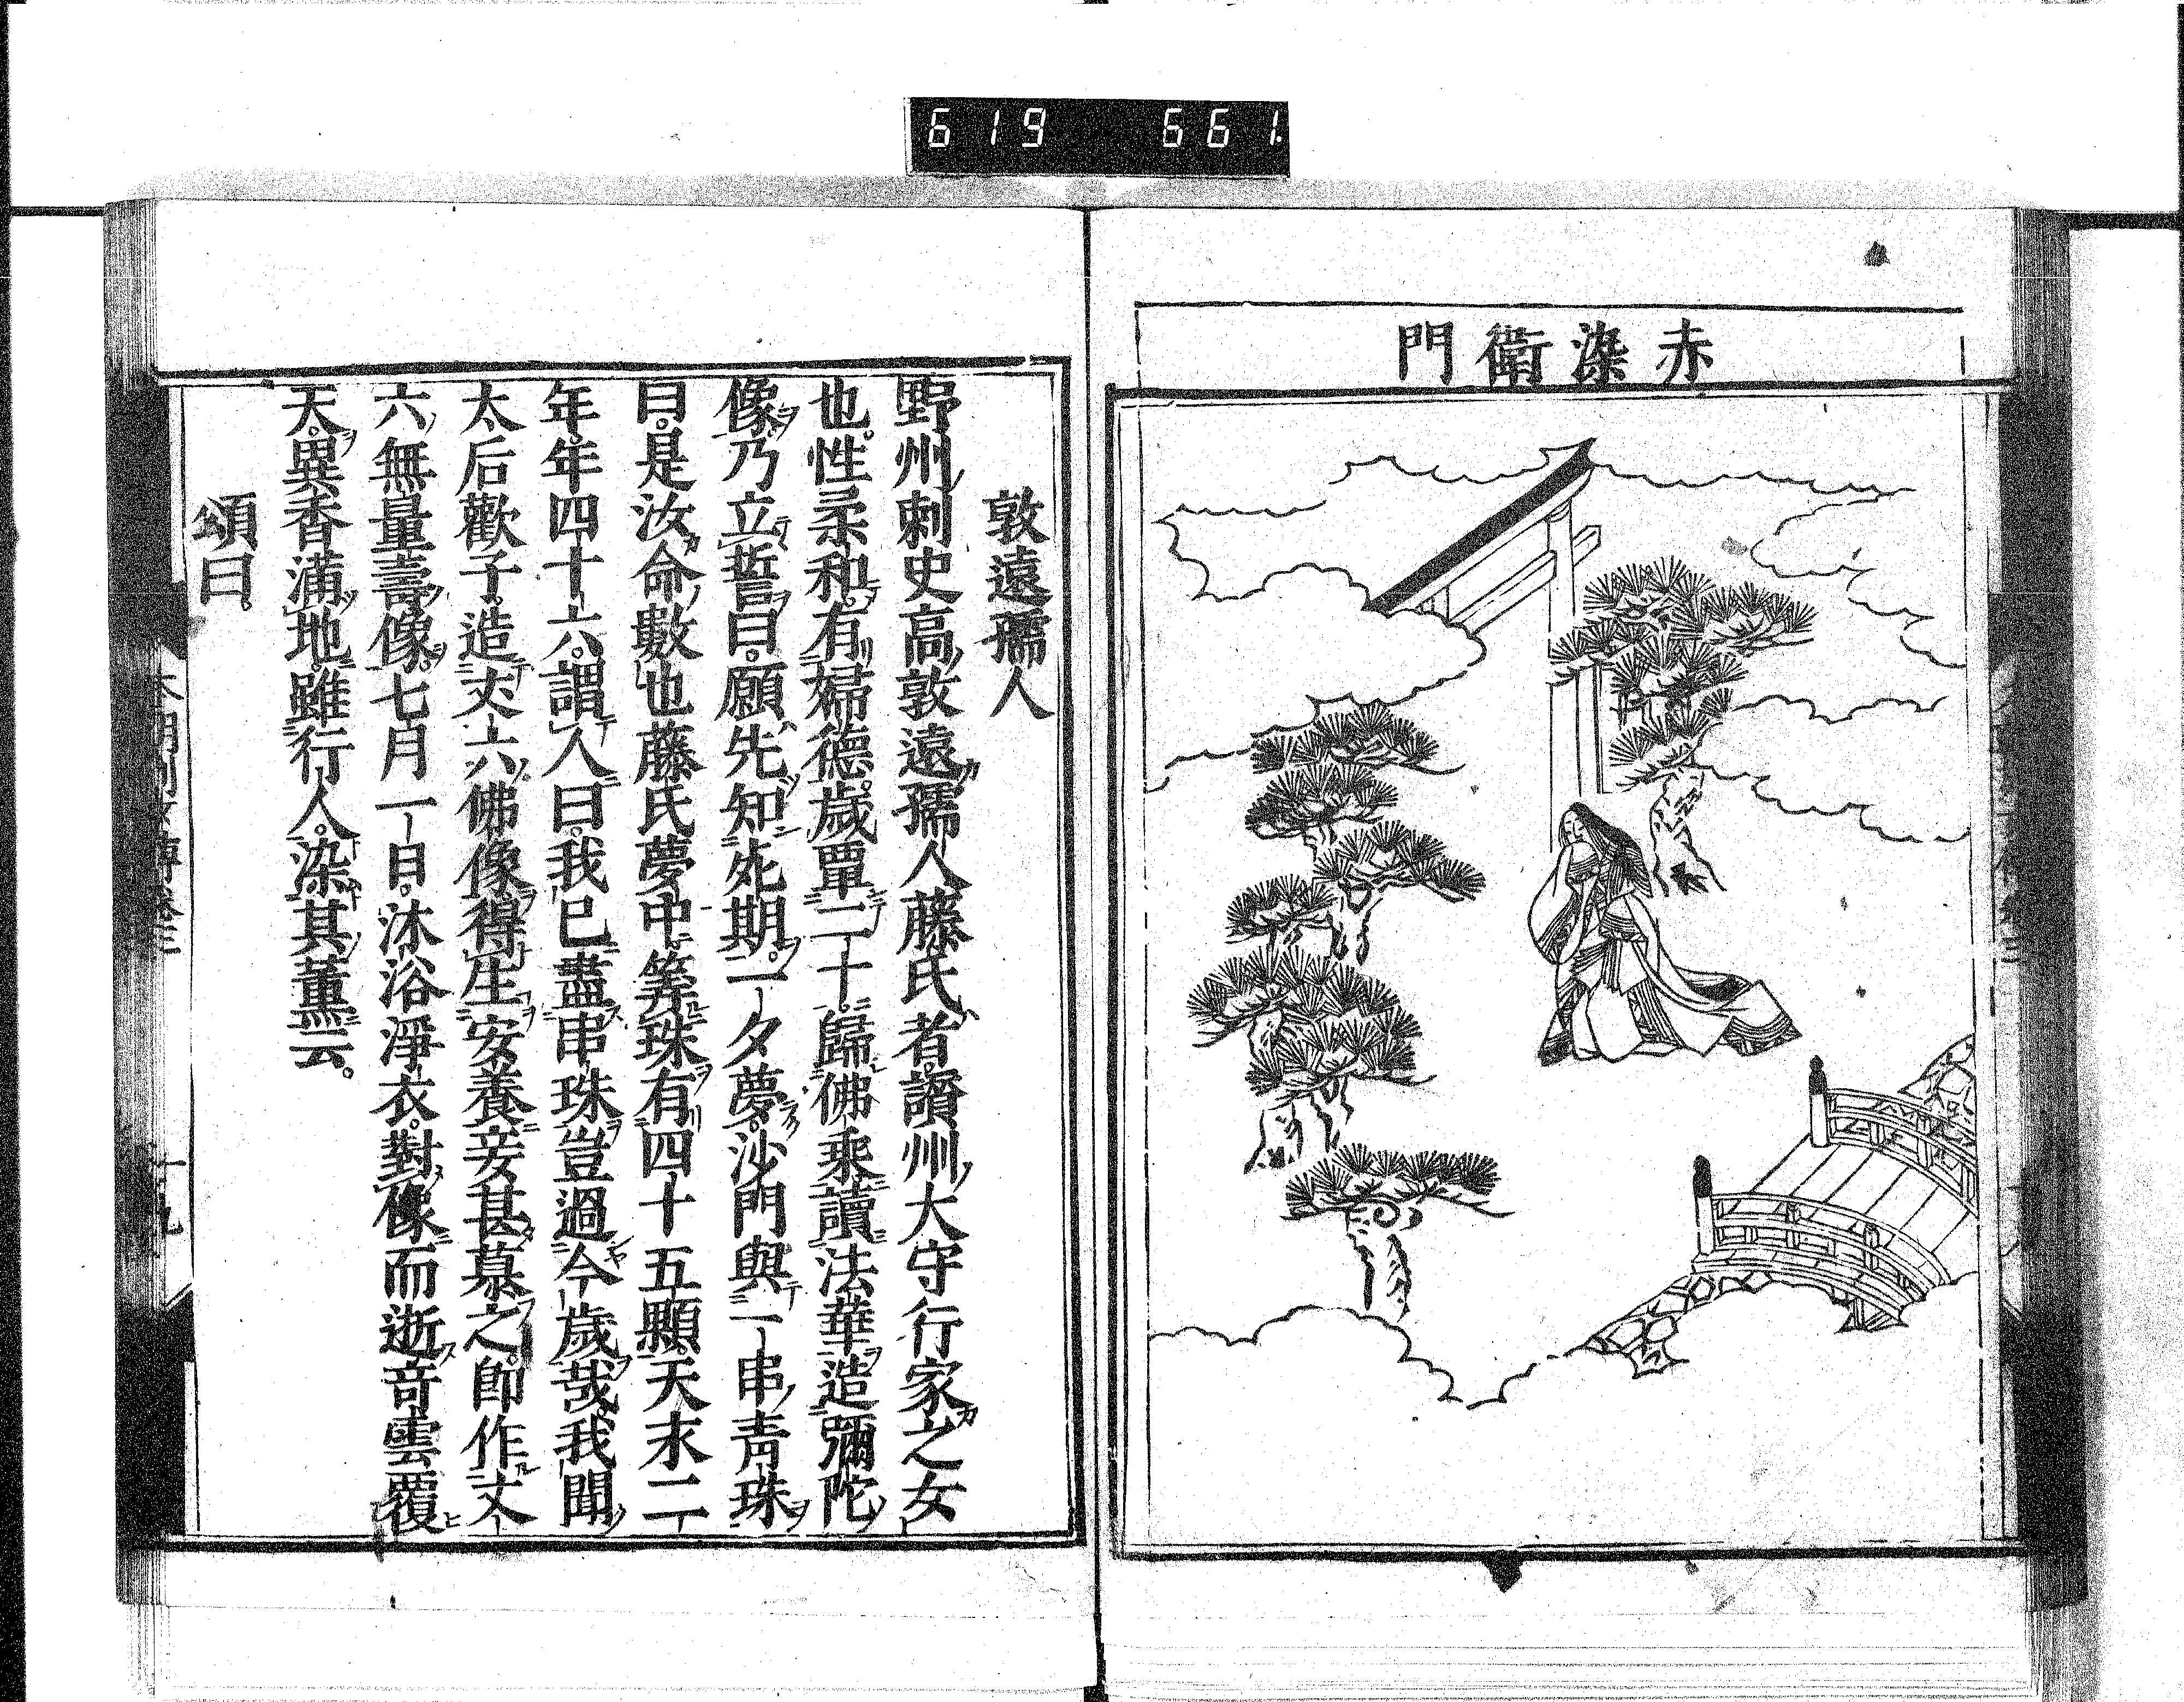 619 661
赤染衛門
敦遠孺人
野州刺史高敦遠孺人藤氏者讃州大守行家之女
也。性柔和。有婦德。歲覃二十。歸佛乘讀法華造彌陀
像。乃立誓曰。願先知死期。一夕夢。沙門與一串青珠
曰。是汝命數也藤氏夢中。筭珠有四十五顆。天永二
年。年四十六。謂人曰。我已盡串珠豈過今歲哉。我聞
太后歡子。造丈六佛像得生安養妾甚慕之。即作丈
六無量壽像。七月一日。沐浴淨衣。對像而逝奇雲覆
天。異香滿地。雖行人。染其薰云。
頌曰。